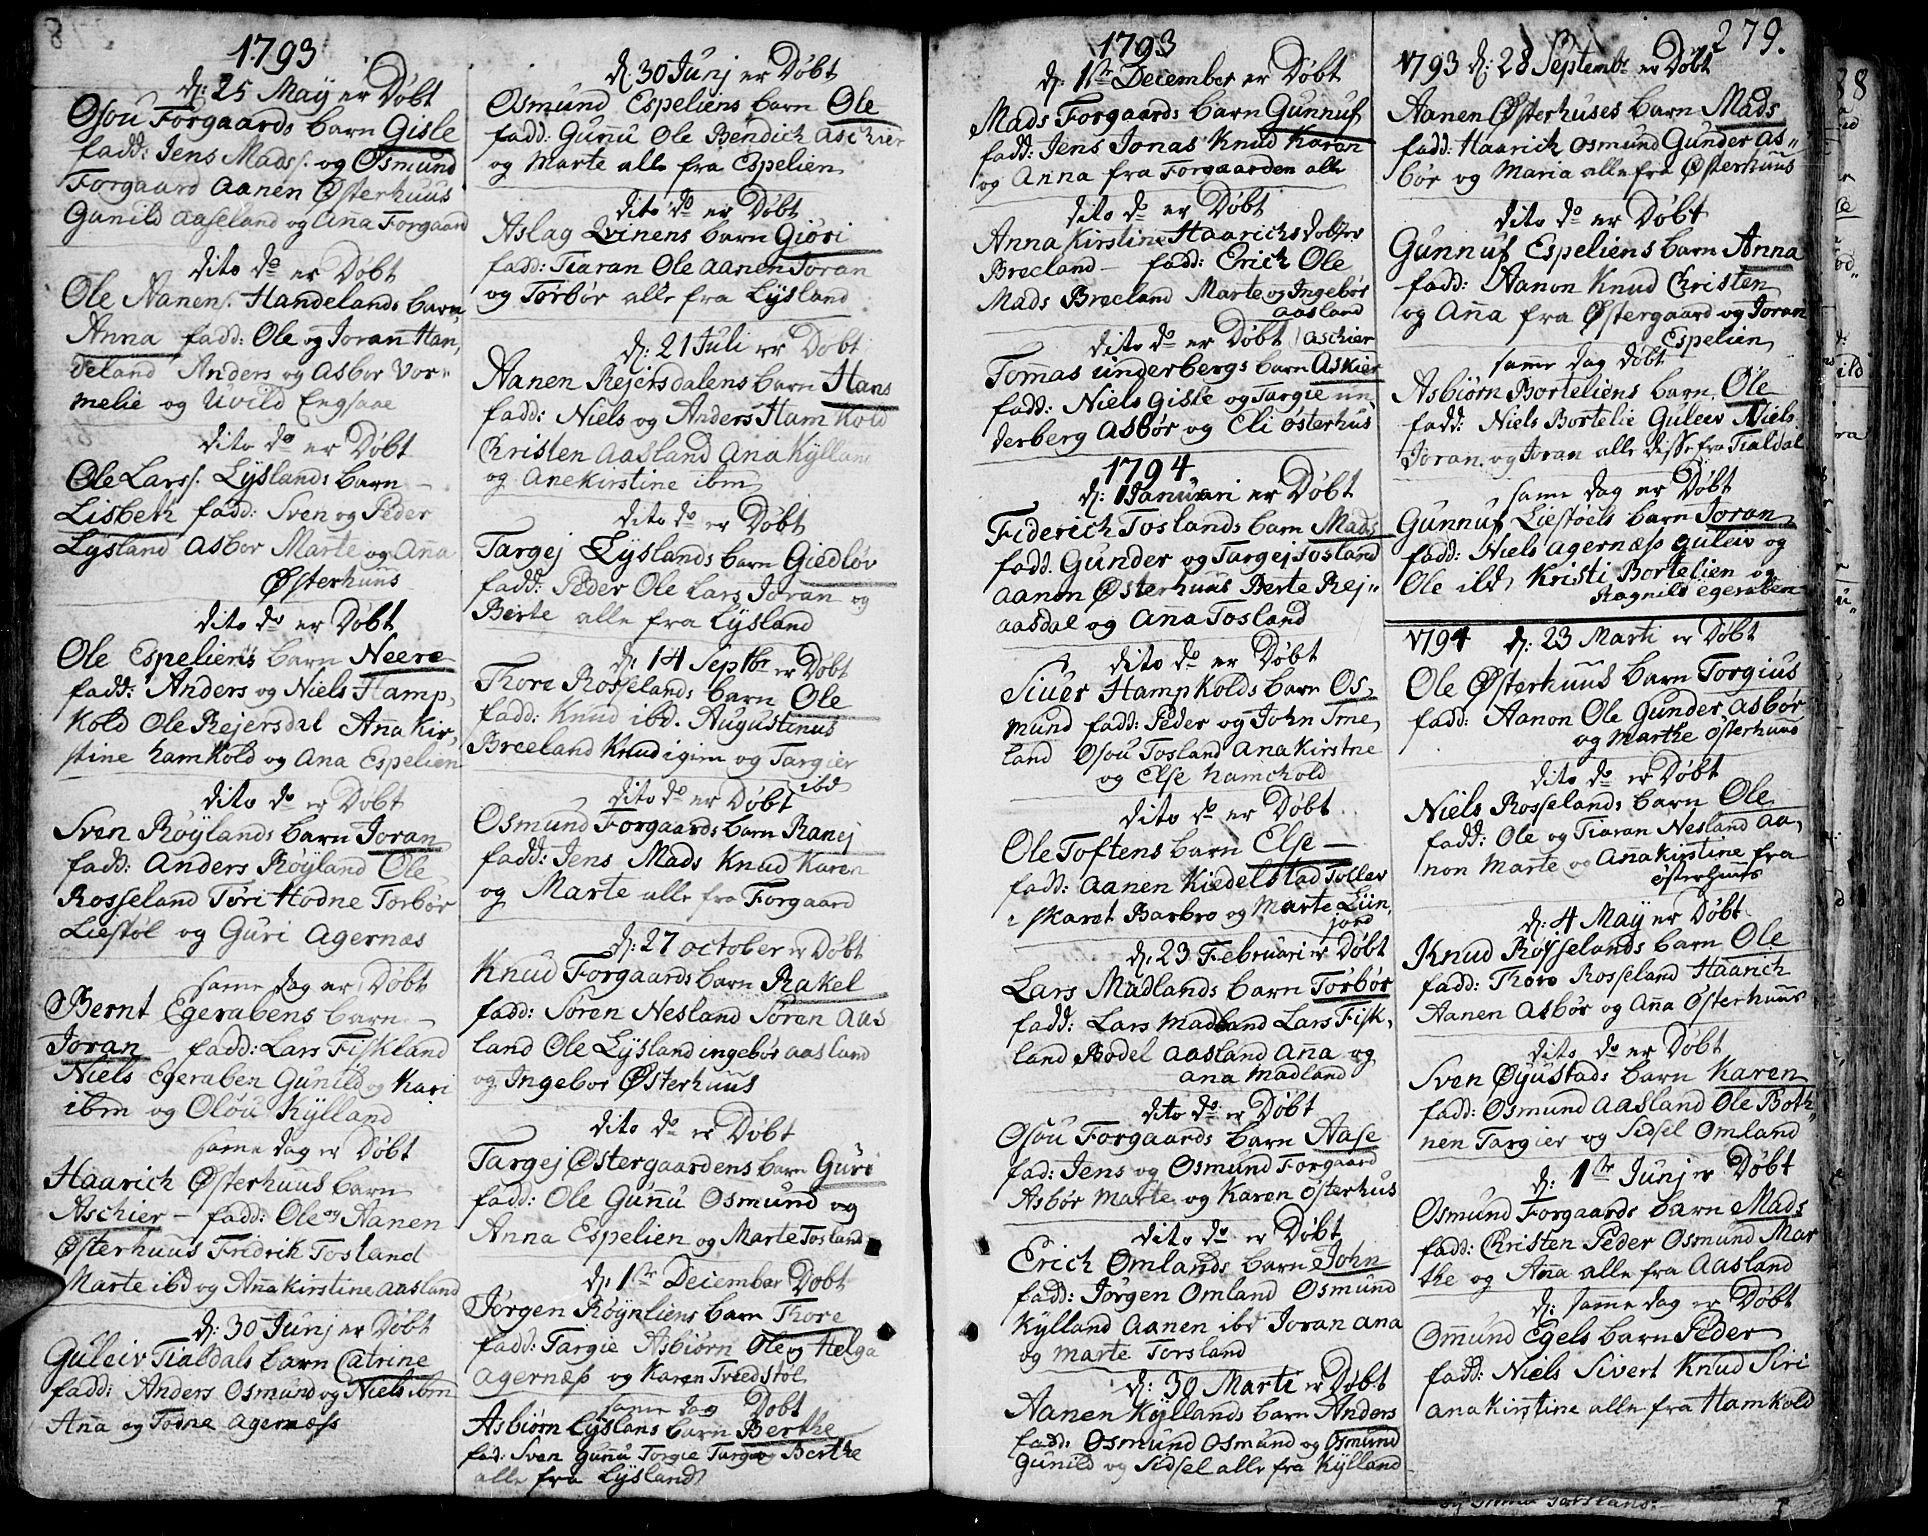 1793
d: 25 Maÿ er Døbt
Osou Forgaards barn Gisle
fadd: Jens Mads. og Osmund
Forgaard Aanen Østerhuus
Gunild Aaseland og Anna Forgaard
dito do er Døbt
Ole Aanens. Handelands barn
Anna fadd: Ole og Joran Han,
deland Anders og Asbor Vor=
melie og Uvild Engsaae
dito do er Døbt
Ole Larss. Lÿslands barn –
Lisbeth fadd: Sven og Peder
Lÿsland Asbor Marte og Anna
Østerhuus
dito do er Døbt
Ole Espeliens barn Neere
fadd: Anders og Niels Hamp,
kold Ole Rejersdal Ana Kir,
stine hamkold og Ana Espelien
dito do er Døbt
Sven Røÿlands barn Joran
fadd: Anders Røÿland Ole
Rosseland Tøri Hodne Torbør
Liestøl og Guri Agernæs
same dag er Døbt
Bernt Egerabens barn –
Joran – fadd: Lars Fiskland
Niels Egeraben Gunild og Kari
ibm og Oløu Kÿlland
same dag er Døbt
Haarich Østerhuus barn
Aschier – fadd: Ole og Aanen
Østerhuus Fridrik Tosland
Marte ibd og Anna kirstine Aasland
d: 30 Junj er Døbt
Guleiv Tialdals barn Catrine
fadd: Anders Osmund og Niels ibm
Ana og Todne Agernæss
d: 30 Junj er Døbt
Osmund Espeliens barn Ole
fadd: Gunu Ole Bendich Aschier
og Marte alle fra Espelien
dito do er Døbt
Aslag Qvinens barn Giøri
fadd: Tiaran Ole Aanen Joran
og Torbør alle fra Lÿsland
d: 21 Juli er Døbt
Aanen Rejersdalens barn Hans
fadd: Niels og Anders Hamkold
Christen Aasland Ana Kÿlland
og Anekirstine ibm
dito do er Døbt
Targej Lÿslands barn Giedløv
fadd: Peder Ole Lars Joran og
Berte alle fra Lÿsland
d: 14 Septbr er Døbt
Thore Rosselands barn Ole
fadd: Knud ibd. Augustinus
Breeland Knud igim og Targier
ibd
dito do er Døbt
Osmund Forgaards barn Ranej
fadd: Jens Mads Knud Karen
og Marte alle fra Forgaard
d: 27 october er Døbt
Knud Forgaards barn Rakel
fadd: Søren Nesland Søren Aas
land Ole Lÿsland ingebør Aasland
og Ingebor Østerhuus
dito do er Døbt
Targej Østergaardens barn Guri
fadd: Ole Gunu Osmund og
Anna Espelien og Marte Tosland
d: 1te December Døbt
Jørgen Røÿnliens barn Thore
fadd: Targie Asbiørn Ole og Helga
Agernæss og Karen Tvedstøl
same dag Døbt
Asbiørn Lÿslans barn Berthe
fad: Sven Gunu Torgie Targe og Berthe
alle fra Lÿsland
1793
d: 1te December er Døbt
Mads Forgaards barn Gunnuf
fadd: Jens Jonas Knud Karan
og Anna fra Forgaarden alle
dito do er Døbt
Anna Kirstine Haarichs dotter
Brecland – fadd: Erich Ole
Mads Brecland Marte og Ingebør
Aasland
dito do er Døbt Aschier
Tomas underbergs barn Askier
fadd: Niels Gisle og Targie un,
derberg Asbør og Eli Østerhus
1794
d: 1 Januari er Døbt
Fiderich Toslands barn Mads
fadd. Gunder og Targej Tosland
Aanon Østerhuus Berte Rej=
aasdal og Anna Tosland
dito do er Døbt
Siuer Hampkolds barn Os,
mund fadd: Peder og John Tme,
land Osou Tosland Ana Kirstne
og Else hamchold
dito do er Døbt
Ole Toftens barn Else –
fadd: Aanen Kiedelstad Tollev
i skaret Barbro og Marte Liin,
jord
d: 23 Februari er Døbt
Lars Madlands barn Torbør
fadd: Lars Madland Lars Fisk,
land Bodel Aasland Anna og
Ana Madland
dito do er Døbt
Osou Forgaards barn Aase
fad: Jens og Osmund Forgaard
Asbør Marte og Karen Østerhus
dito do er Døbt
Erich Omlands barn John
fadd: Jørgen Omland Osmund
Kÿlland Aanen ibd Joran Ana
og Marte Torsland
d: 30 Marti er Døbt
Aanen Kÿllands barn Anders
fadd: Osmund Osmund og Osmund
Gunild og Sidsel alle fra Kÿlland
279.
1793 d: 28 Septembr er Døbt
Aanen Østerhuses barn Mads
fadd: Haarich Osmund Gunder As=
bør og Maria alle fra Østerhuus
dito do er Døbt
Gunnuf Espeliens barn Anna
fadd: Aanon Knud Christen
og Anna fra Østergaard og Joran
Espelien
same dag døbt
Asbiørn Borteliens barn Ole
fadd: Niels Bortelie Guleiv Niels
Joran og Joran alle disse fra Tialdal
same dag er Døbt
Gunnuf Liestøels barn Joran
fadd: Niels Agernæss Guleiv og
Ole ibd Kristi Bortelien og
Ragnild egeraben
1794 d: 23 Marti er Døbt
Ole Østerhuus barn Torgius
fadd: Aanon Ole Gunder Asbør
og Marthe Østerhuus
dito do er Døbt
Niels Rosselands barn Ole
fadd: Ole og Tiaran Nesland Aa,
non Marte og Anna Kirstine fra
Østerhuus
d: 4 Maÿ er Døbt
Knud Røsselands barn Ole
fadd: Thoro Rosseland Haarich
Aanen Asbør og Anna Østerhuus
dito do er Døbt
Sven Øÿustads barn Karen
fadd: Osmund Aasland Ole Both=
nen Targier og Sidsel Omland
d: 1te Junj er Døbt
Osmund Forgaards barn Mads
fadd: Christen Peder Osmund Mar
the og Anna alle fra Aasland
d: samme dag er Døbt
Ommund Egels barn Peder
fadd: Niels Sivert Knud Siri
Anakirstine alle fra Hamkold